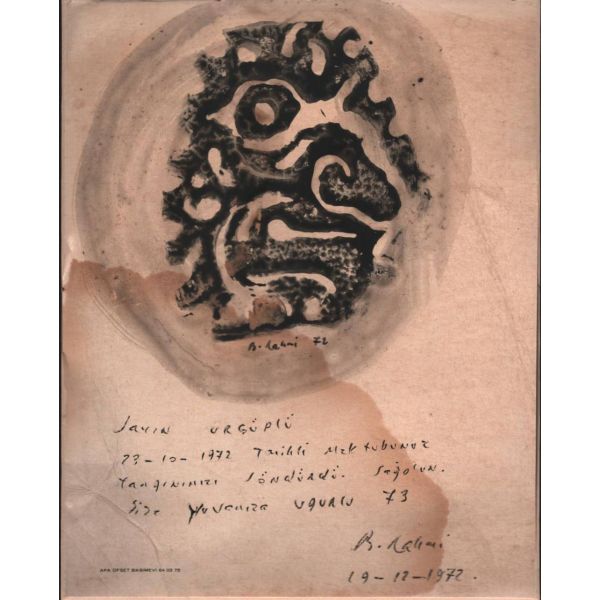 B. Rahmi 72
Sayın ÜRGÜPLÜ
23-10-1972 Tarihli Mektubunuz
Yangınımızı Söndürdü. Sağolun.
Size Yuvanıza uğurlu 73
B. Rahmi
19-12-1972.
APA OFSET BASIMEVİ 64 03 75